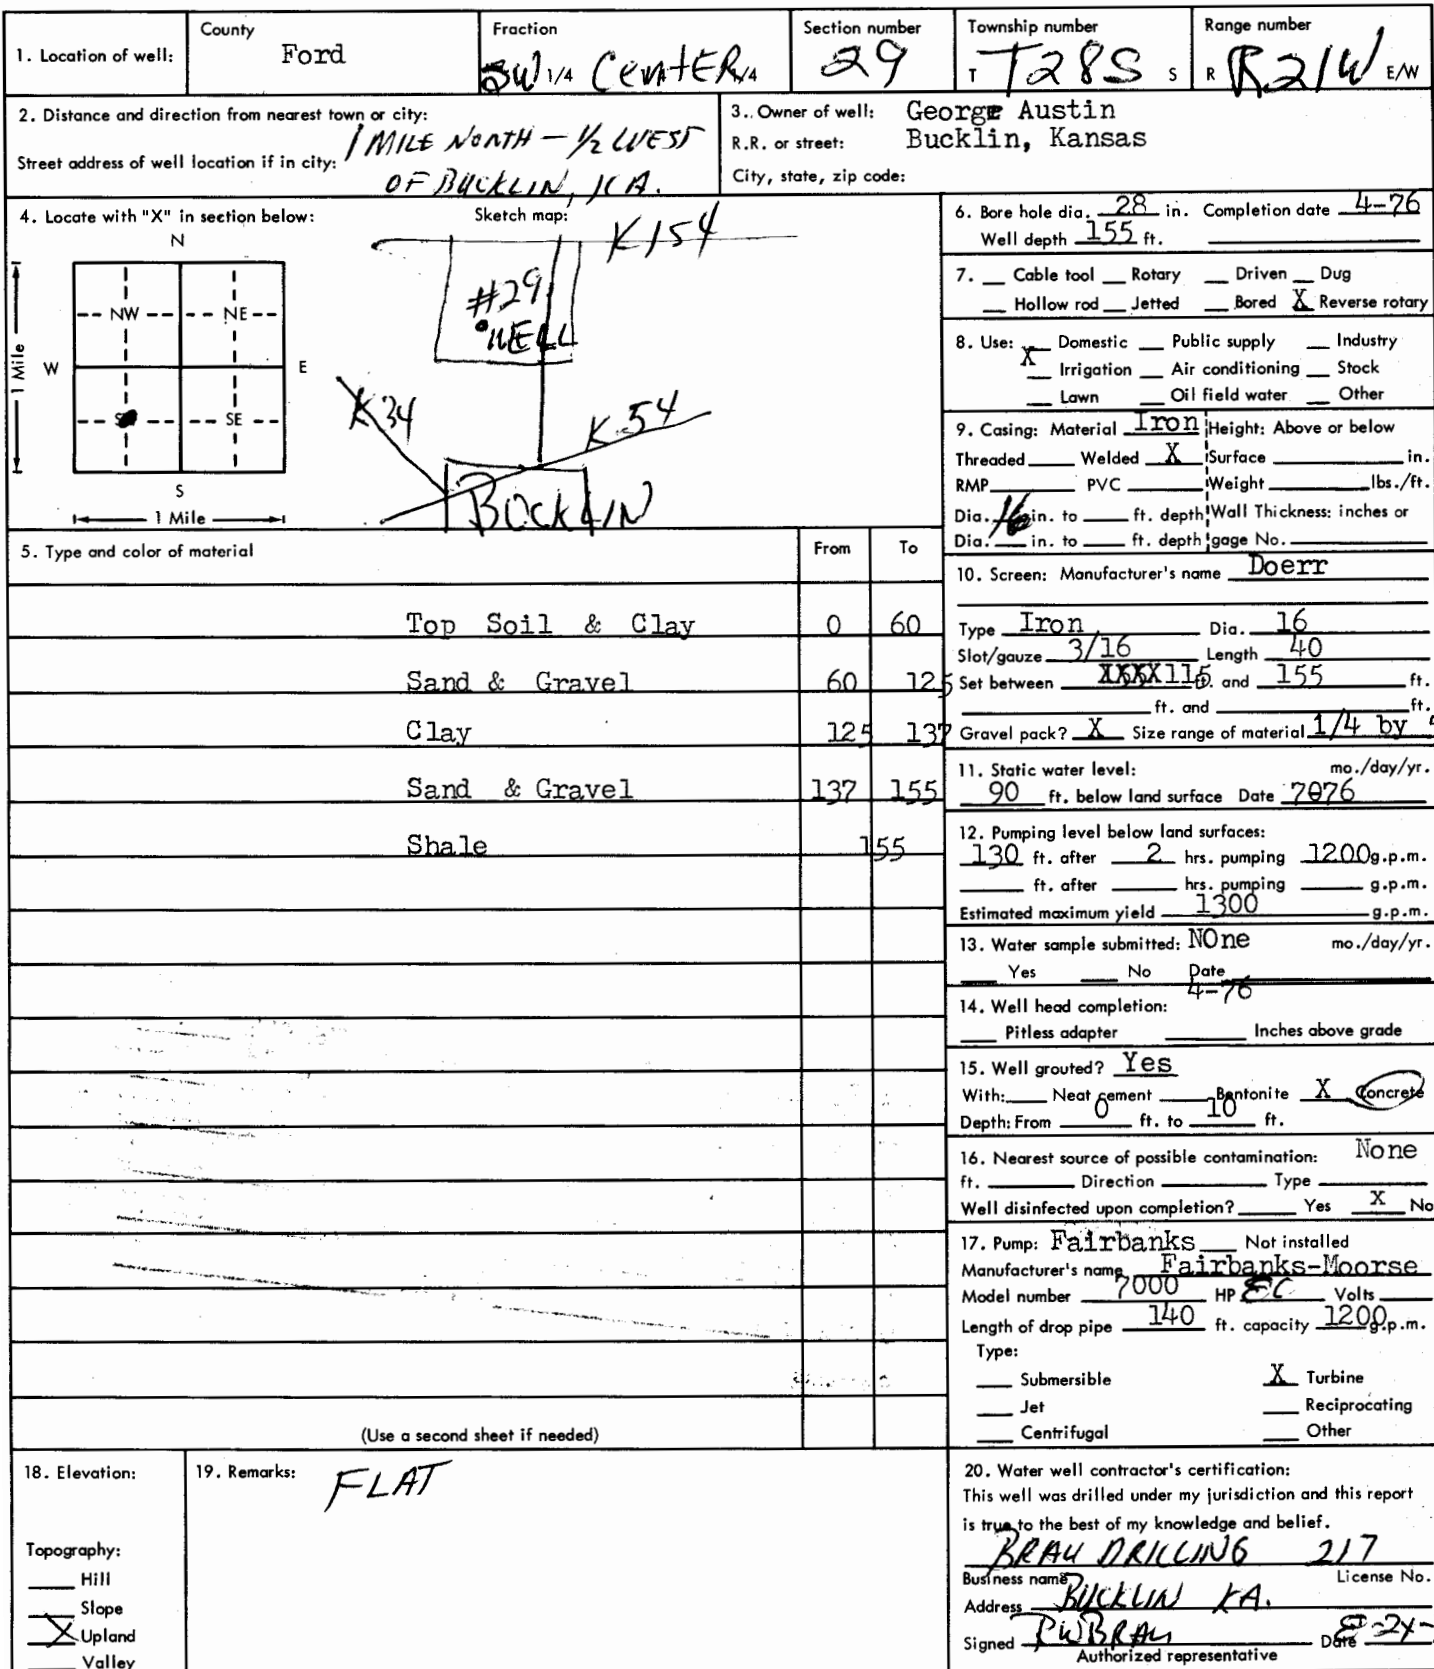 1. Location of well: County Ford Fraction SW 1/4 CENTER 1/4 Section number 29 Township number T T28S S Range number R R21W E/W
2. Distance and direction from nearest town or city: 1 MILE NORTH — 1/2 WEST
Street address of well location if in city: OF BUCKLIN, KA.
3. Owner of well: George Austin
R.R. or street: Bucklin, Kansas
City, state, zip code:
4. Locate with "X" in section below:
N
NW NE
W E
SE
S
1 Mile
1 Mile
Sketch map:
K154
#29
WELL
K34
K54
BUCKLIN
5. Type and color of material From To
Top Soil & Clay 0 60
Sand & Gravel 60 125
Clay 125 137
Sand & Gravel 137 155
Shale 155
(Use a second sheet if needed)
6. Bore hole dia. 28 in. Completion date 4-76
Well depth 155 ft.
7. Cable tool Rotary Driven Dug
Hollow rod Jetted Bored X Reverse rotary
8. Use: Domestic Public supply Industry
X Irrigation Air conditioning Stock
Lawn Oil field water Other
9. Casing: Material Iron Height: Above or below
Threaded Welded X Surface in.
RMP PVC Weight lbs./ft.
Dia. 16 in. to ft. depth Wall Thickness: inches or
Dia. in. to ft. depth gage No.
10. Screen: Manufacturer's name Doerr
Type Iron Dia. 16
Slot/gauze 3/16 Length 40
Set between XXXX115 ft. and 155 ft.
ft. and ft.
Gravel pack? X Size range of material 1/4 by
11. Static water level: mo./day/yr.
90 ft. below land surface Date 7076
12. Pumping level below land surfaces:
130 ft. after 2 hrs. pumping 1200 g.p.m.
ft. after hrs. pumping g.p.m.
Estimated maximum yield 1300 g.p.m.
13. Water sample submitted: NOne mo./day/yr.
Yes No Date
4-76
14. Well head completion:
Pitless adapter Inches above grade
15. Well grouted? Yes
With: Neat cement Bentonite X Concrete
Depth: From 0 ft. to 10 ft.
16. Nearest source of possible contamination: None
ft. Direction Type
Well disinfected upon completion? Yes X No
17. Pump: Fairbanks Not installed
Manufacturer's name Fairbanks-Moorse
Model number 7000 HP Volts
Length of drop pipe 140 ft. capacity 1200 g.p.m.
Type:
Submersible X Turbine
Jet Reciprocating
Centrifugal Other
18. Elevation:
Topography:
Hill
Slope
X Upland
Valley
19. Remarks: FLAT
20. Water well contractor's certification:
This well was drilled under my jurisdiction and this report
is true to the best of my knowledge and belief.
BRAU DRILLING 217
Business name License No.
Address BUCKLIN KA.
Signed RWBRAU Date
Authorized representative